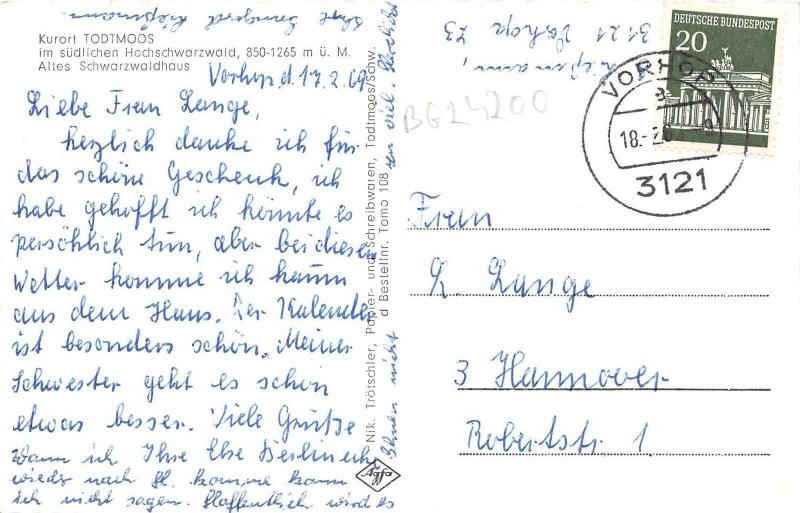 Kurort TODTMOOS
im südlichen Hochschwarzwald, 850-1265 m ü. M.
Altes Schwarzwaldhaus
Vorhop d. 17.2.69
Liebe Frau Lange,
herzlich danke ich für
das schöne Geschenk, ich
habe gehofft ich könnte es
persöhlich tun, aber bei diesem
Wetter komme ich kaum
aus dem Haus. Der Kalender
ist besonders schön. Meiner
Schwester geht es schon
etwas besser. Viele Grüße
Ihre Else
Wann ich
wieder nach H. komme kann
ich nicht sagen. Hoffentlich wird es
Ihnen nicht
zu viel. Herzlichst
Nik. Trötschler, Papier- und Schreibwaren, Todtmoos/Schw.
d Bestellnr. Tomo 108
Agfa
3121 Vorhop 23
BG24200
DEUTSCHE BUNDESPOST
20
VORHOP
a
18.-2
3121
Frau
L. Lange
3 Hannover
Robertstr. 1